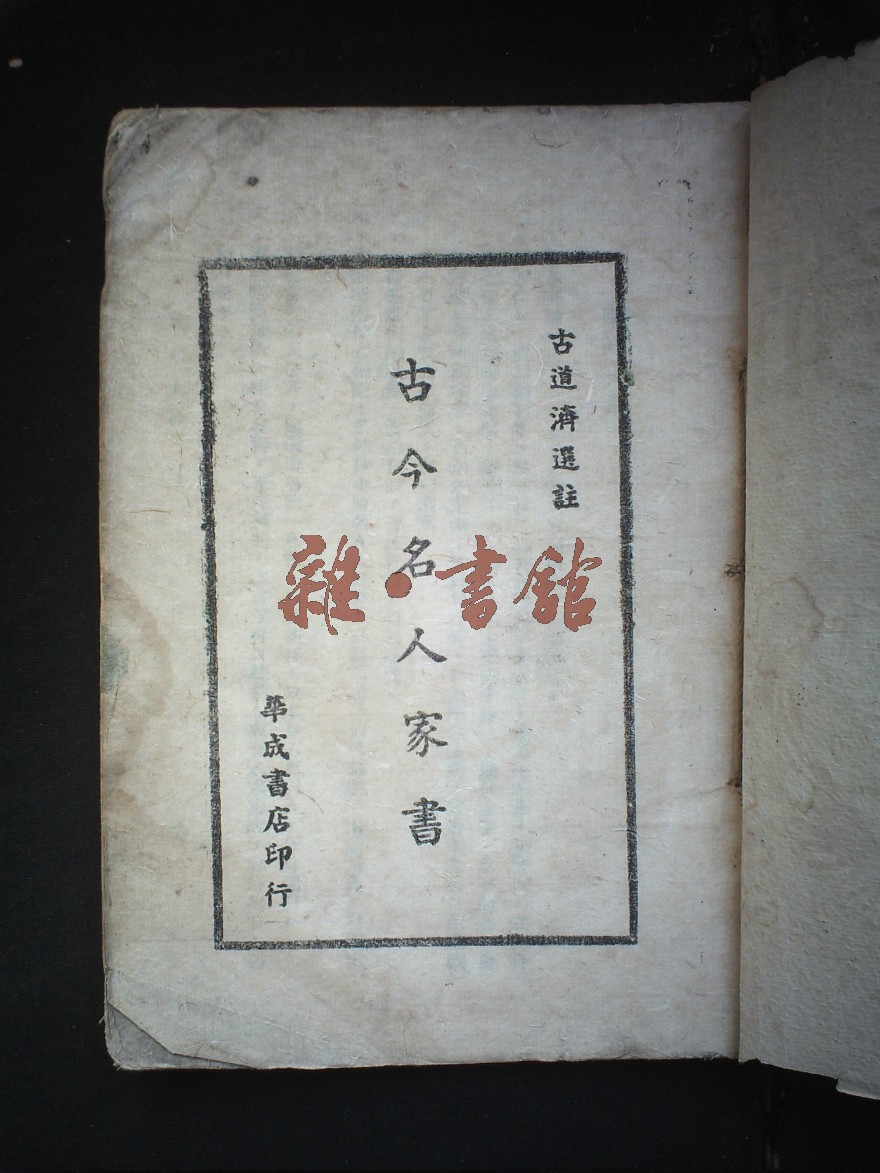 古道濟選註
古今名人家書
華成書店印行
雜·書館